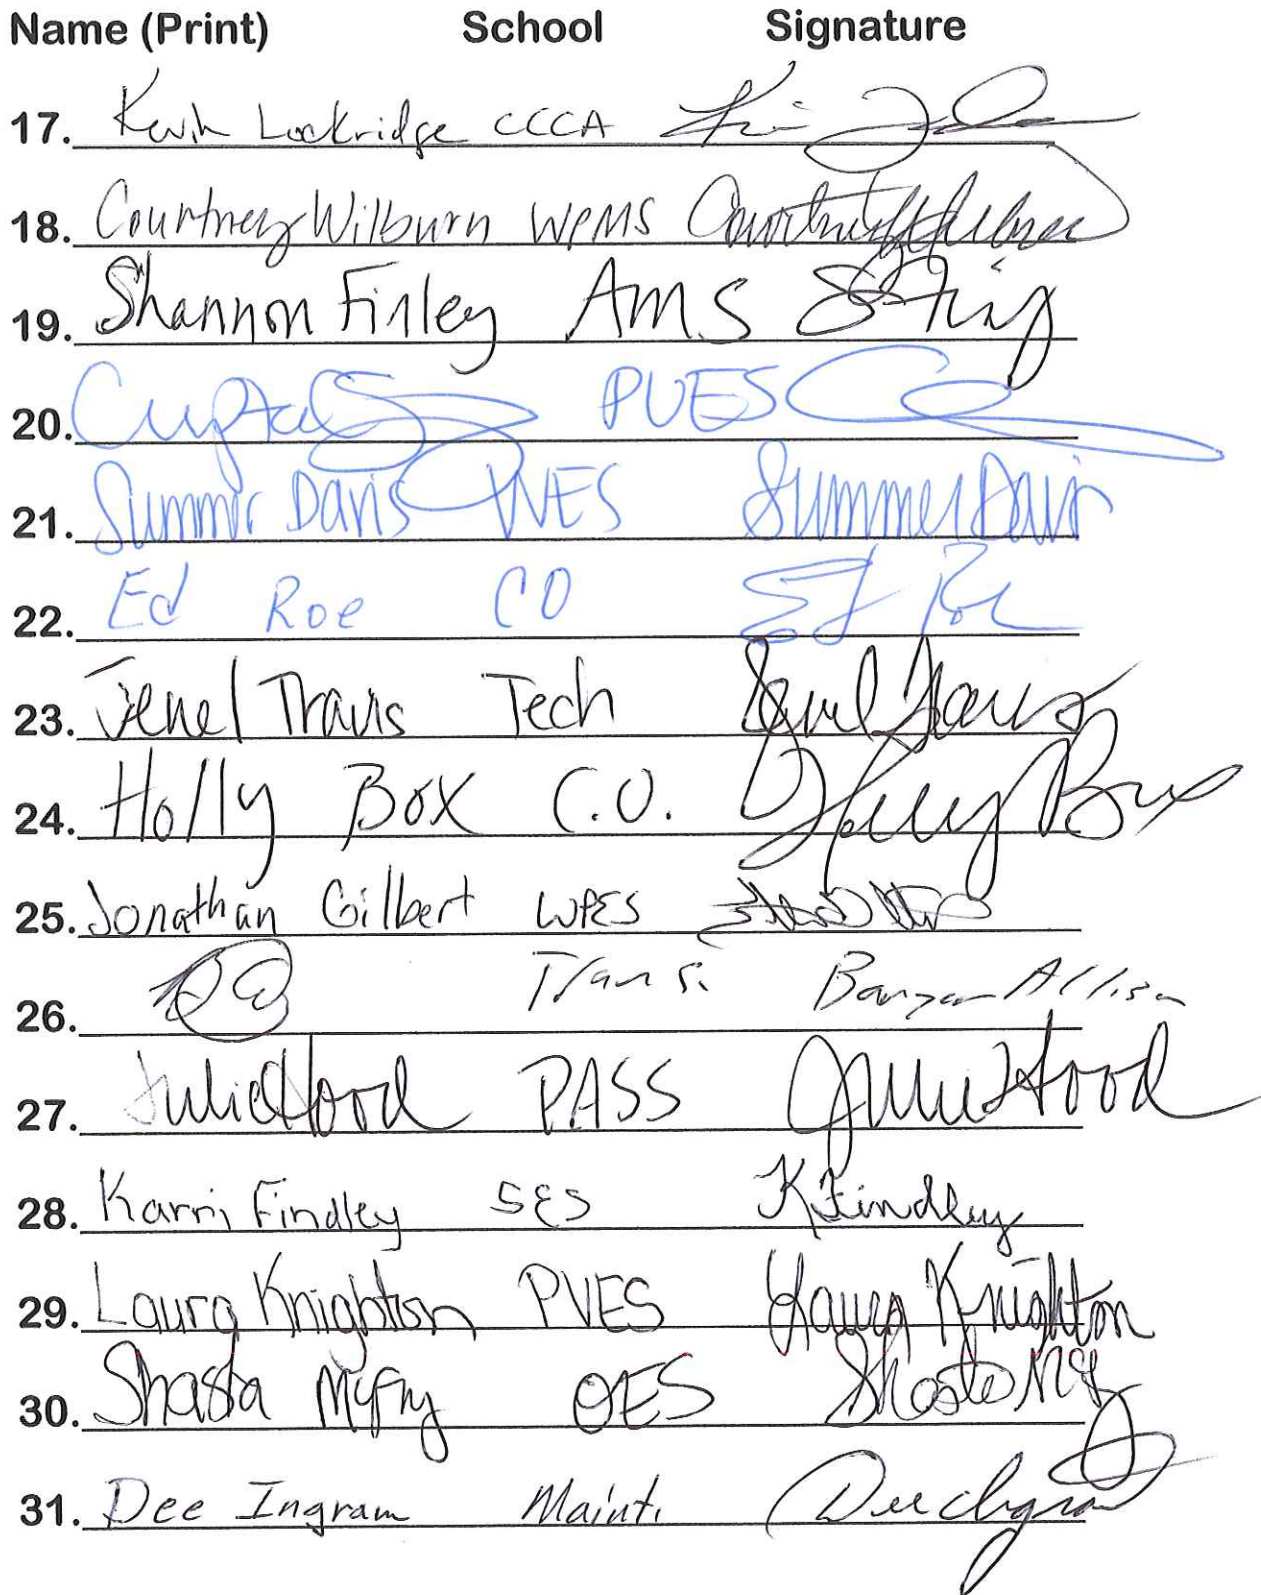 Name (Print) School Signature
17. Kevin Lockridge CCCA
18. Courtney Wilburn WPMS Courtney Wilburn
19. Shannon Finley AMS
20. Crystal PVES
21. Summer Davis PVES Summer Davis
22. Ed Roe CO Ed Roe
23. Jenel Travis Tech Jenel Travis
24. Holly Box C.O. Holly Box
25. Jonathan Gilbert WPES
26. Trans. Allison
27. Julie Hood PASS Julie Hood
28. Karri Findley SES K Findley
29. Laura Knighton PVES Laura Knighton
30. Shasta OES Shasta
31. Dee Ingram Maint. Dee Ingram